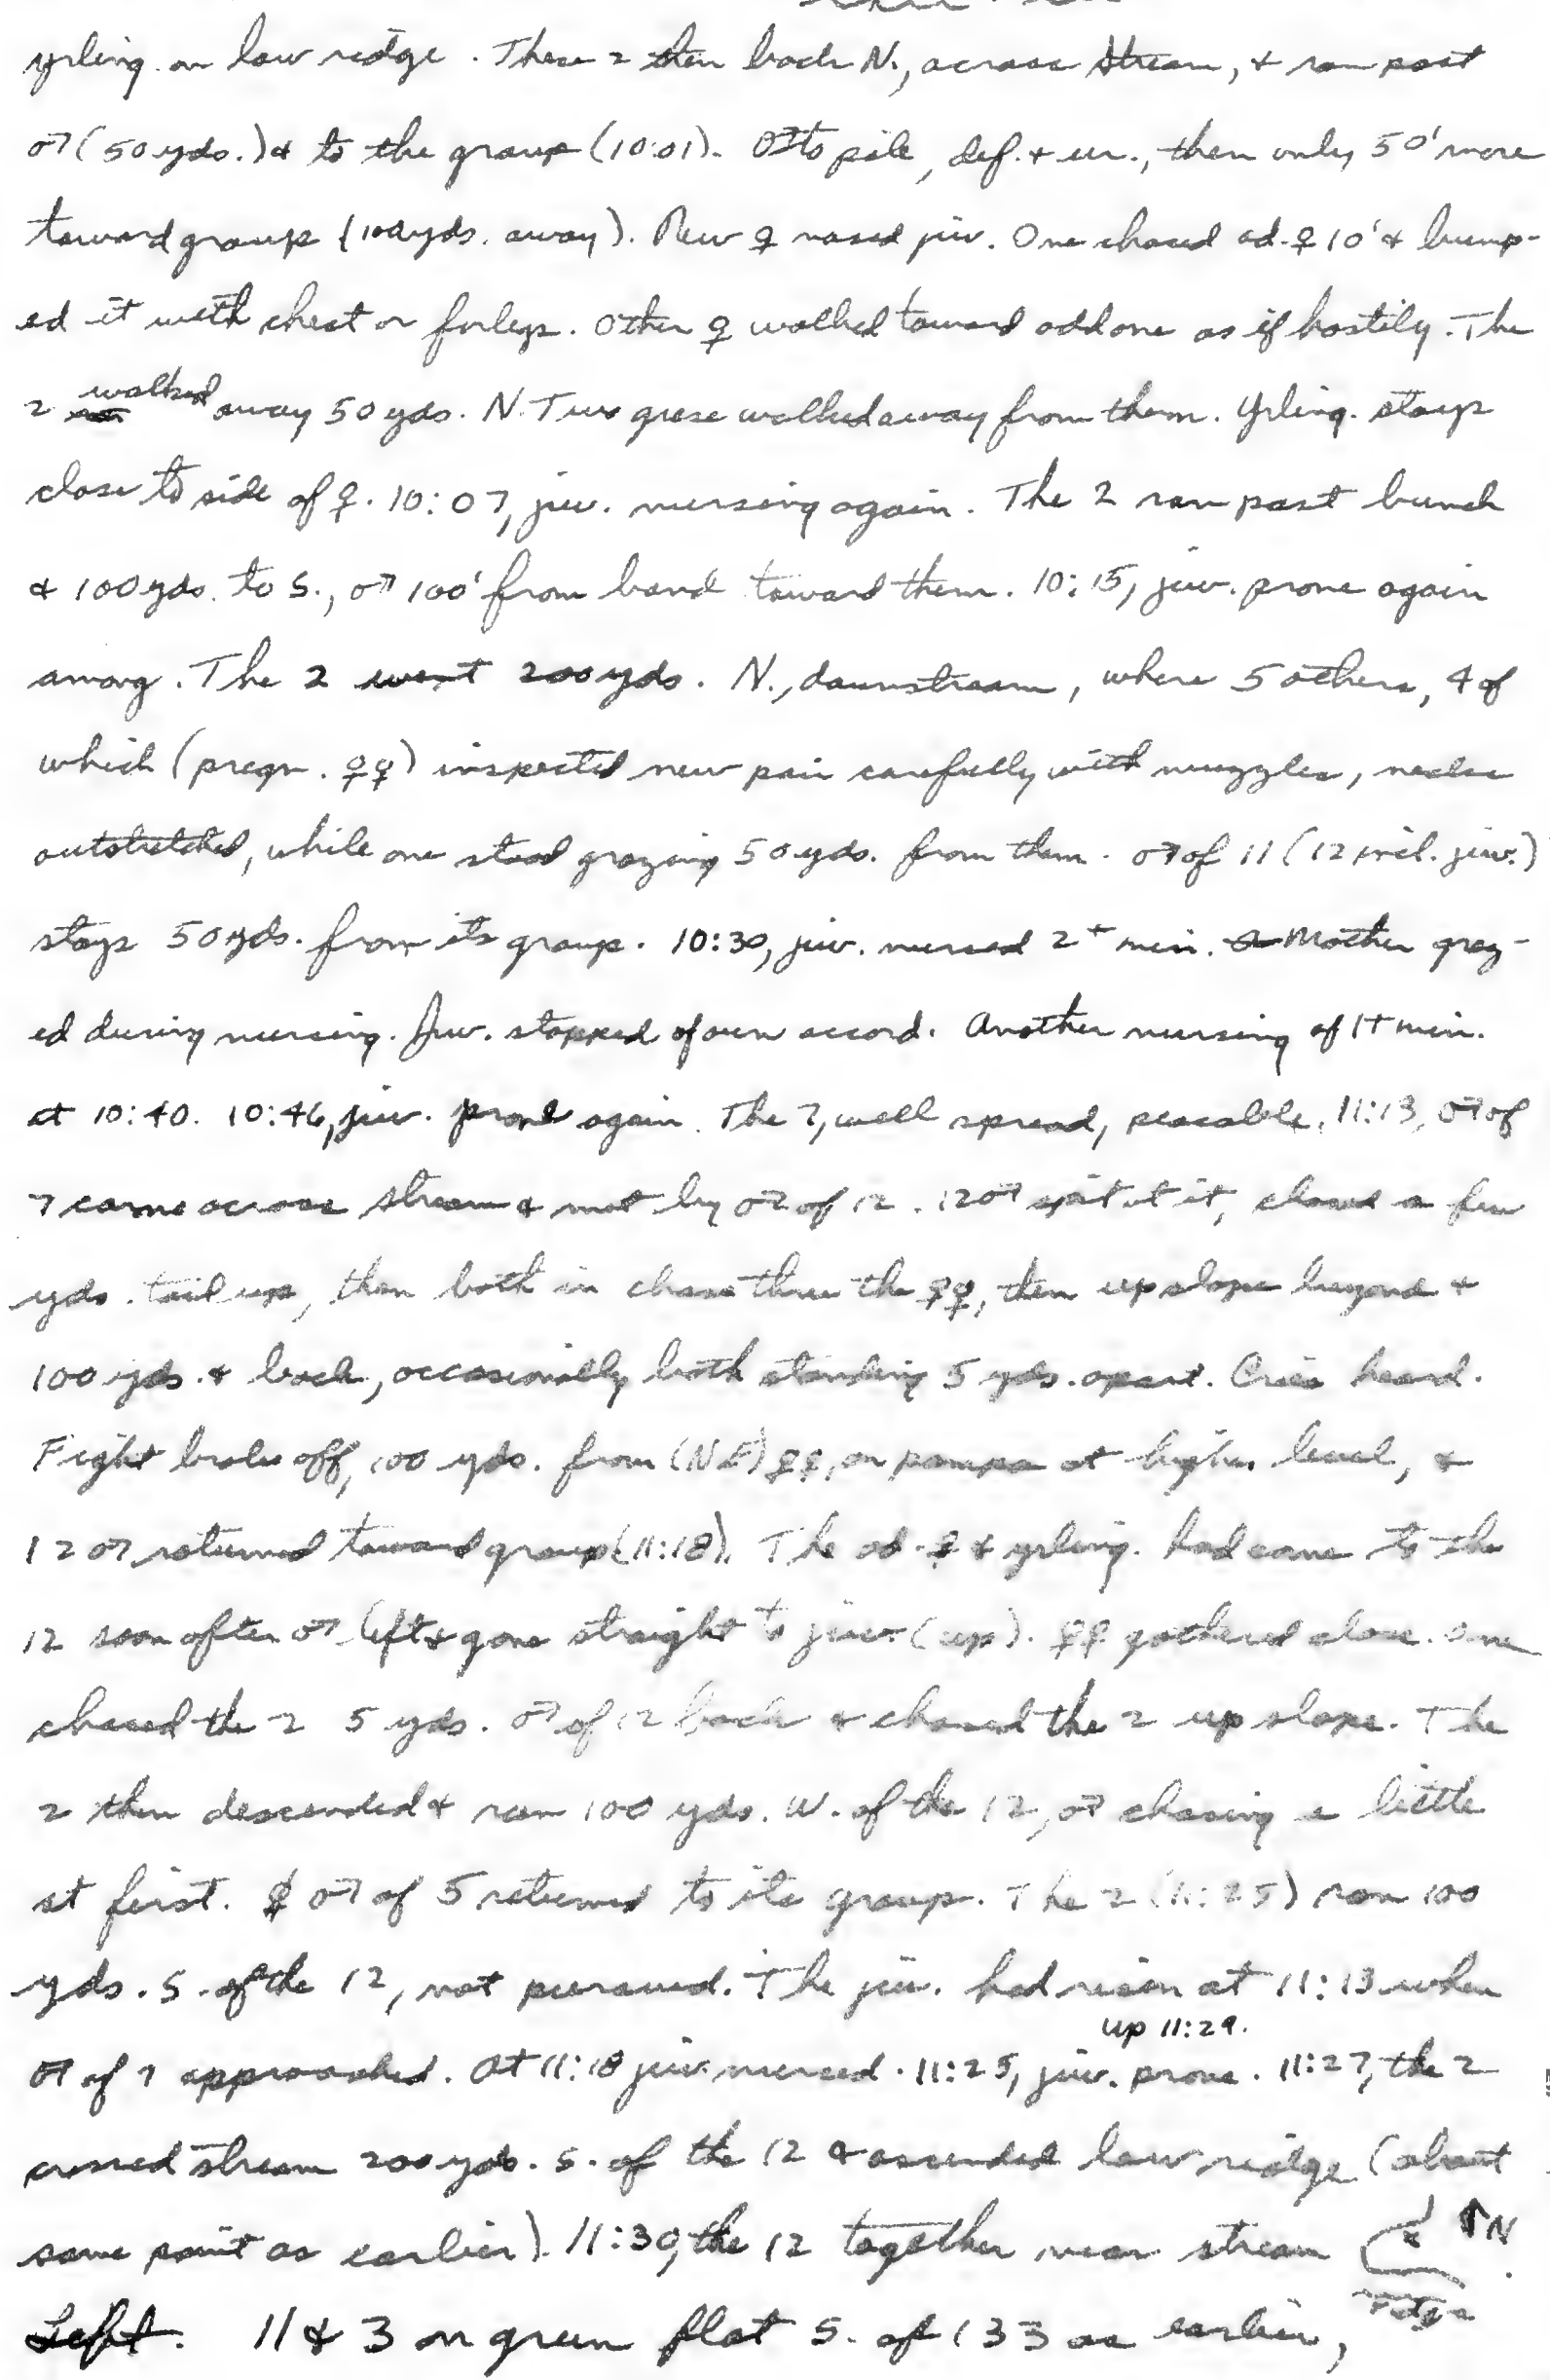 yrling. on low ridge. These 2 then back N., across stream, & ran past
♂ (50 yds.) & to the group (10:01). ♂ to pile, def. & ur., then only 50' more
toward group (100 yds. away). New ♀ nosed juv. One chased ad. ♀ 10' & bump-
ed it with chest or forlegs. Other ♀ walked toward odd one as if hostily. The
2 walked away 50 yds. N. Two geese walked away from them. Yrling. stays
close to side of ♀. 10:07, juv. nursing again. The 2 ran past bunch
& 100 yds. to S., ♂ 100' from band toward them. 10:15, juv. prone again
among. The 2 went 200 yds. N., downstream, where 5 others, 4 of
which (pregn. ♀♀) inspected new pair carefully with muzzles, necks
outstretched, while one stood grazing 50 yds. from them. ♂ of 11 (12 incl. juv.)
stays 50 yds. from its group. 10:30, juv. nursed 2+ min. Mother graz-
ed during nursing. Juv. stopped of own accord. Another nursing of 1+ min.
at 10:40. 10:46, juv. prone again. The 7, well spread, peacable. 11:13, ♂ of
7 came across stream & met by ♂ of 12. 12♂ spit at it, chased a few
yds. tail up, then both in chase thru the ♀♀, then up slope beyond &
100 yds. & back, occasionally both standing 5 yds. apart. Cries heard.
Fight broke off, 100 yds. from (NE) ♀♀, on pampa at higher level, &
12♂ returned toward group (11:18). The ad. ♀ & yrling. had come to the
12 soon after ♂ left & gone straight to juv. (up). ♀♀ gathered close. One
chased the 2 5 yds. ♂ of 12 back & chased the 2 up slope. The
2 then descended & ran 100 yds. W. of the 12, ♂ chasing a little
at first. ♂ of 5 returned to its group. The 2 (11:25) ran 100
yds. S. of the 12, not pursued. The juv. had risen at 11:13 when
up 11:29.
♂ of 7 approached. At 11:18 juv. nursed. 11:25, juv. prone. 11:27, the 2
crossed stream 200 yds. S. of the 12 & ascended low ridge (about
same point as earlier). 11:30, the 12 together near stream
↑N
ridge
Left. 11 & 3 on green flat S. of 133 as earlier,